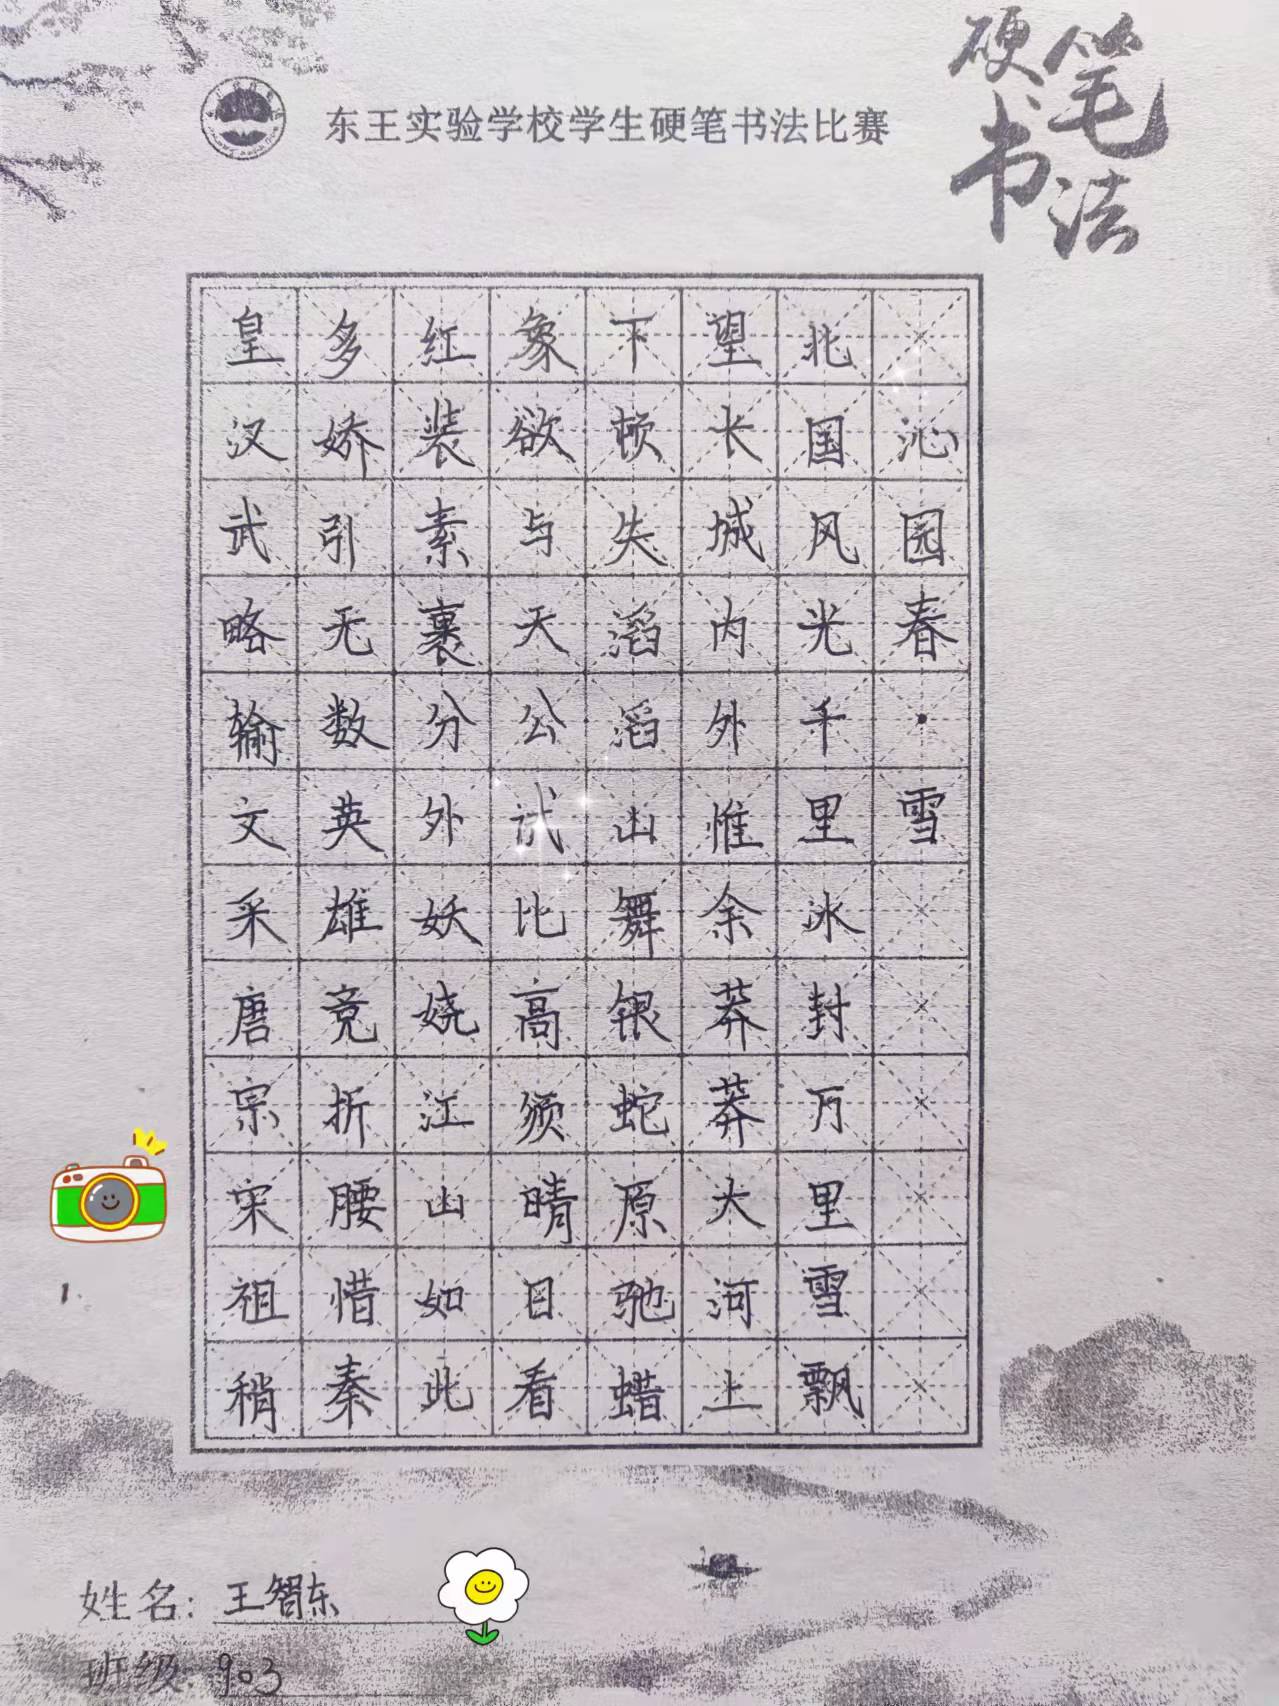 硬笔书法
东王实验学校学生硬笔书法比赛
沁园春·雪
北国风光千里冰封万里雪飘
望长城内外惟余莽莽大河上
下顿失滔滔山舞银蛇原驰蜡
象欲与天公试比高须晴日看
红装素裹分外妖娆江山如此
多娇引无数英雄竞折腰惜秦
皇汉武略输文采唐宗宋祖稍
姓名：王智东
班级：903